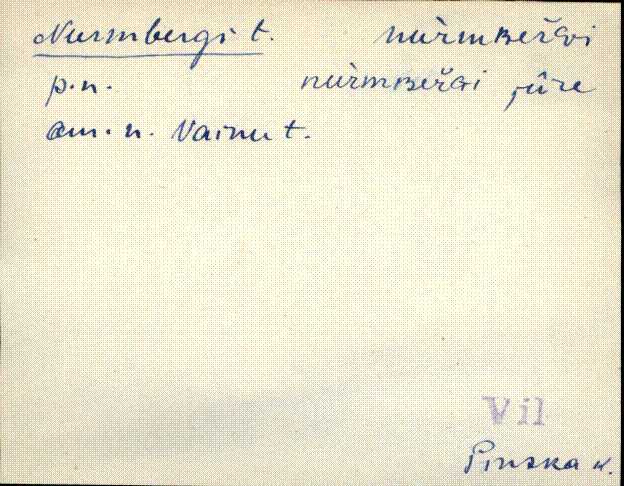 Nurmbergi t. nùrmʙeřɢi
p.n. nùrmʙeřɢi jûre
am.n. Vainu t.
Vil
Pinska k.